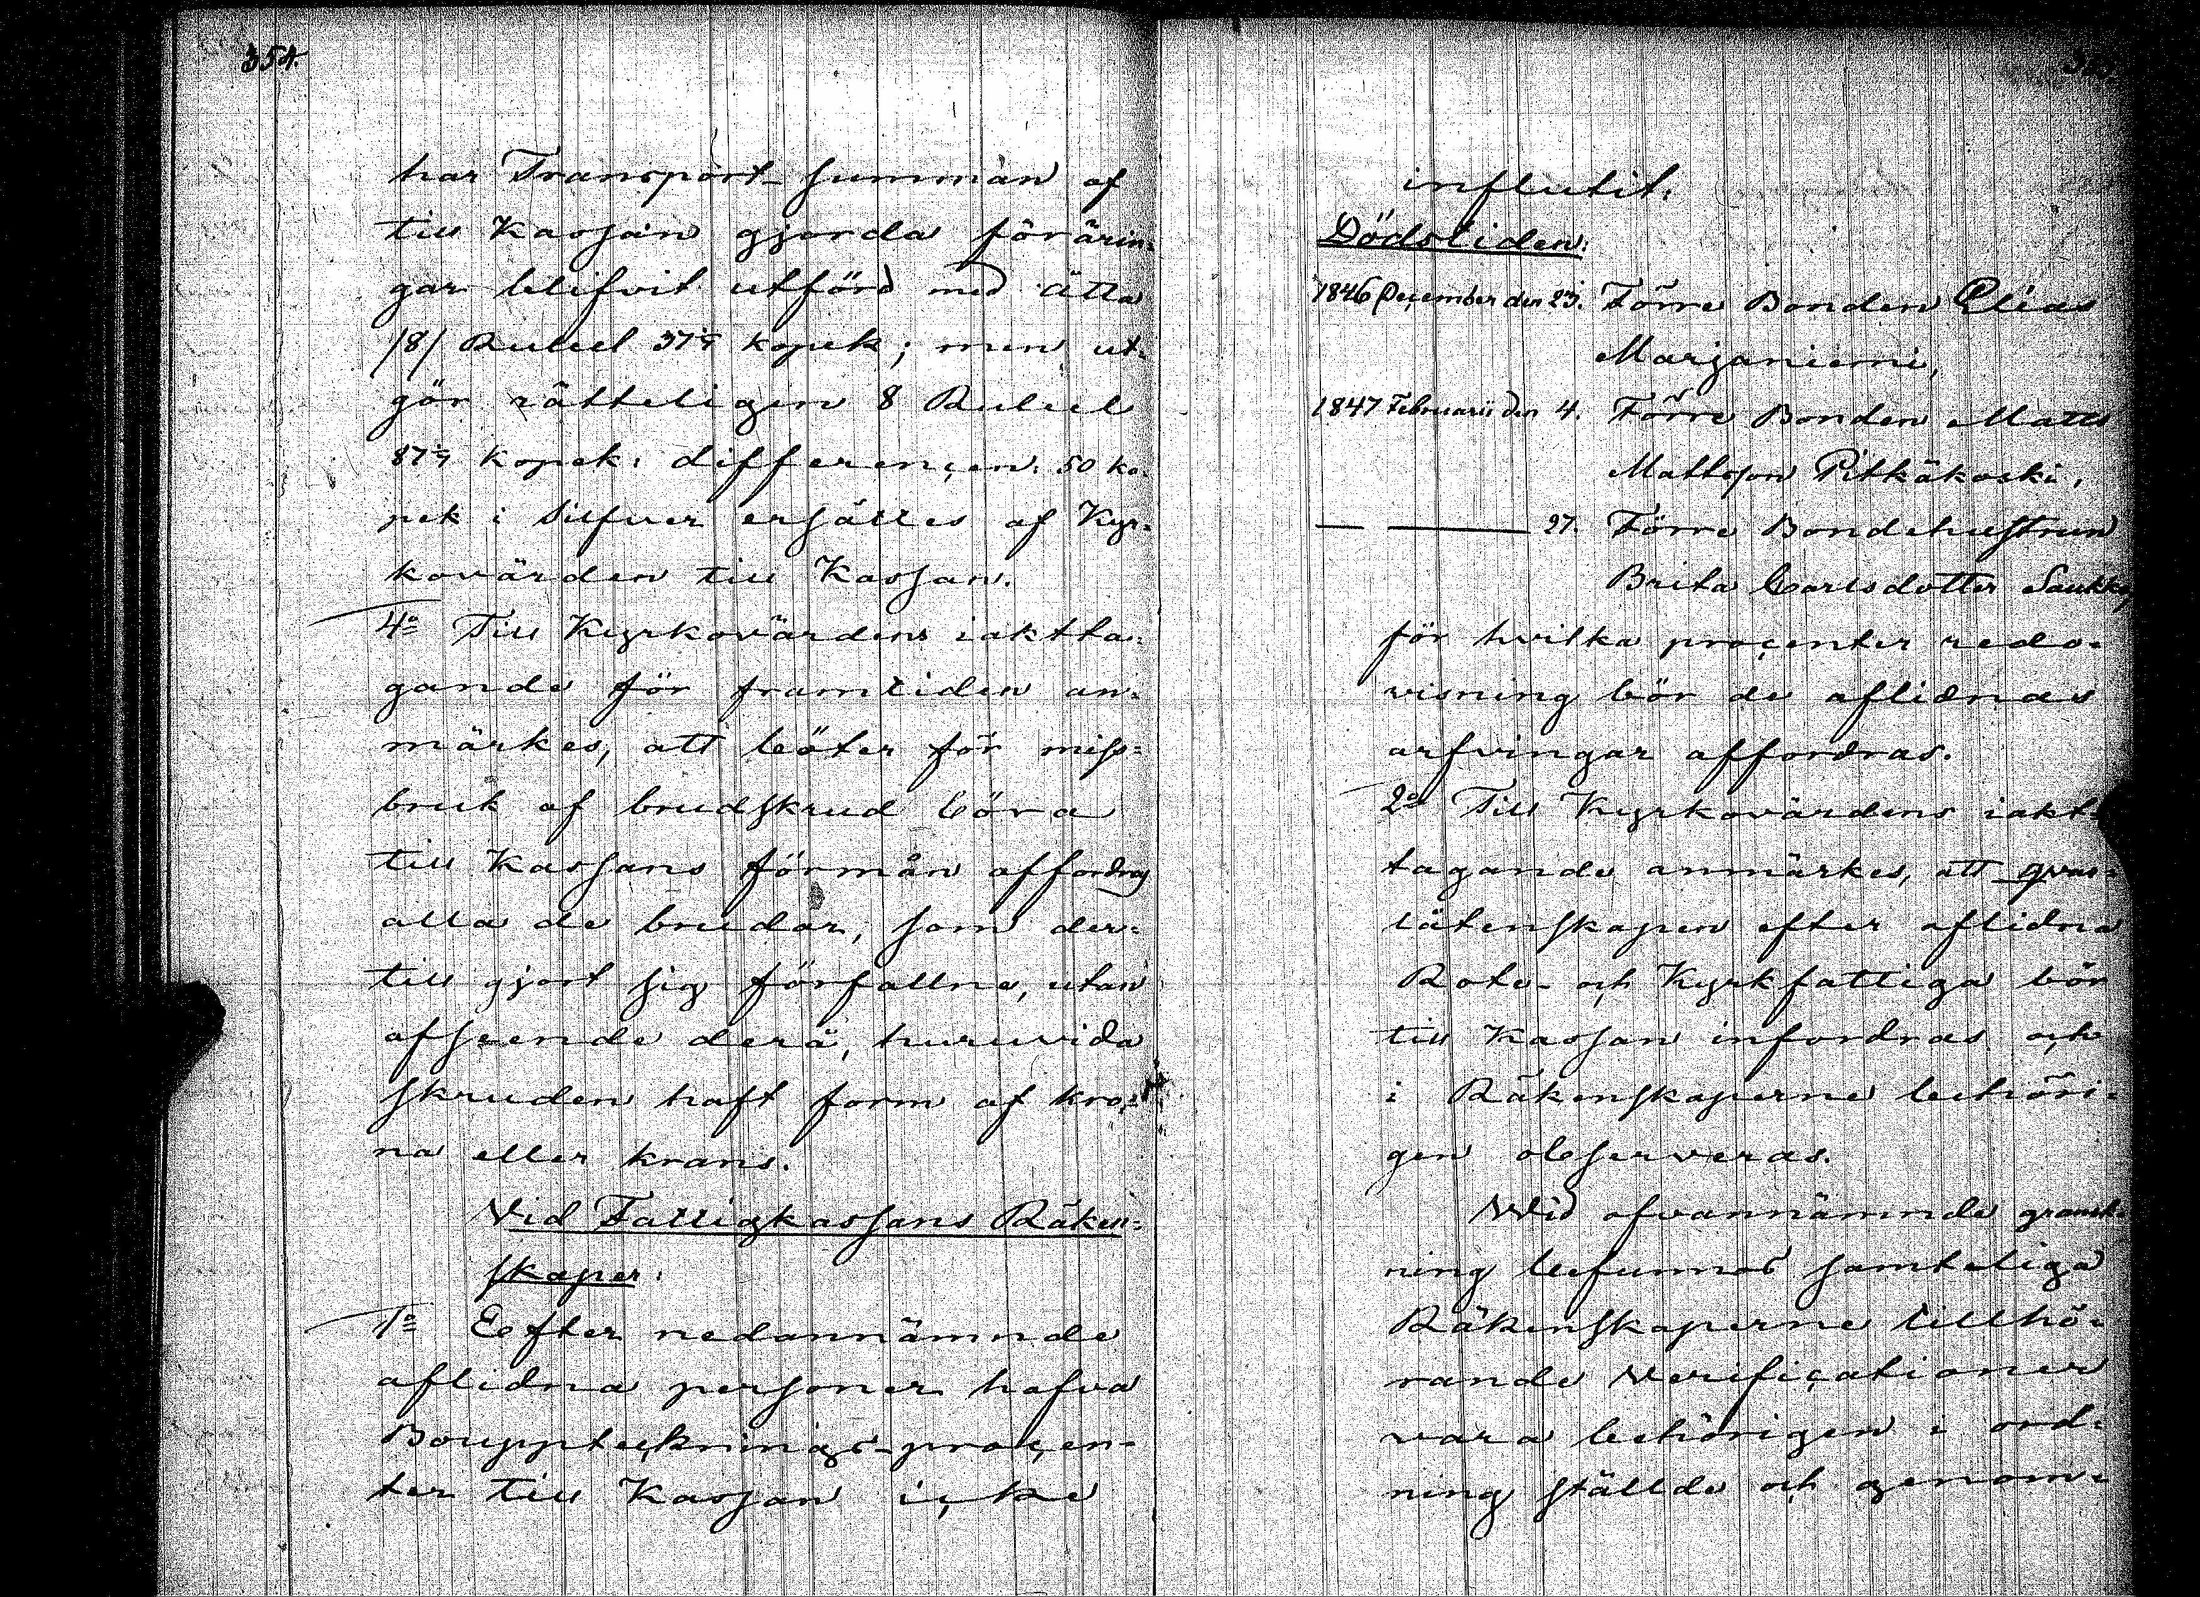 354.
har Transport-summan af
till Kassan gjorda förärin=
gar blifvit utförd med åtta
/8/ Rubel 37 1/7 kopek; men ut=
gör rätteligen 8 Rubel
87 1/7 kopek: differençen: 50 ko=
pek i Silfver ersättes af Kyr=
kovärden till Kassan.
4o Till Kyrkovärdens iaktta=
gande för framtiden an=
märkes, att böter för miss=
bruk af brudskrud böra
till Kassans förmån affordras
alla de brudar, som der=
till gjort sig förfallne, utan
afseende derå, huruvida
skruden haft form af kro=
na eller krans.
Vid Fattigkassans Räken=
skaper:
1o Eefter nedannämnde
aflidna personer hafva
Bouppteçknings-proçen=
ter till Kassan içke
influtit:
Dödstiden:
1846 December den 23. Förre Bonden Elias
Marjaniemi,
1847 Februarii den 4. Förre Bonden Matts
Mattsson Pitkäkoski,
— — 27. Förre Bondehustrun
Brita Carlsdotter Saukko,
för hvilka proçenter redo=
visning bör de aflidnas
arfvingar affordras.
2o Till Kyrkovärdens iakt=
tagande anmärkes, att qvar=
låtenskapen efter aflidna
Rote- och Kyrkfattiga bör
till Kassan infordras och
i Räkenskaperne behöri=
gen observeras.
Wid ofvannämnde gransk=
ning befunnos samteliga
Räkenskaperne tillhö=
rande Verifiçationer
vara behörigen i ord=
ning ställde och genom=